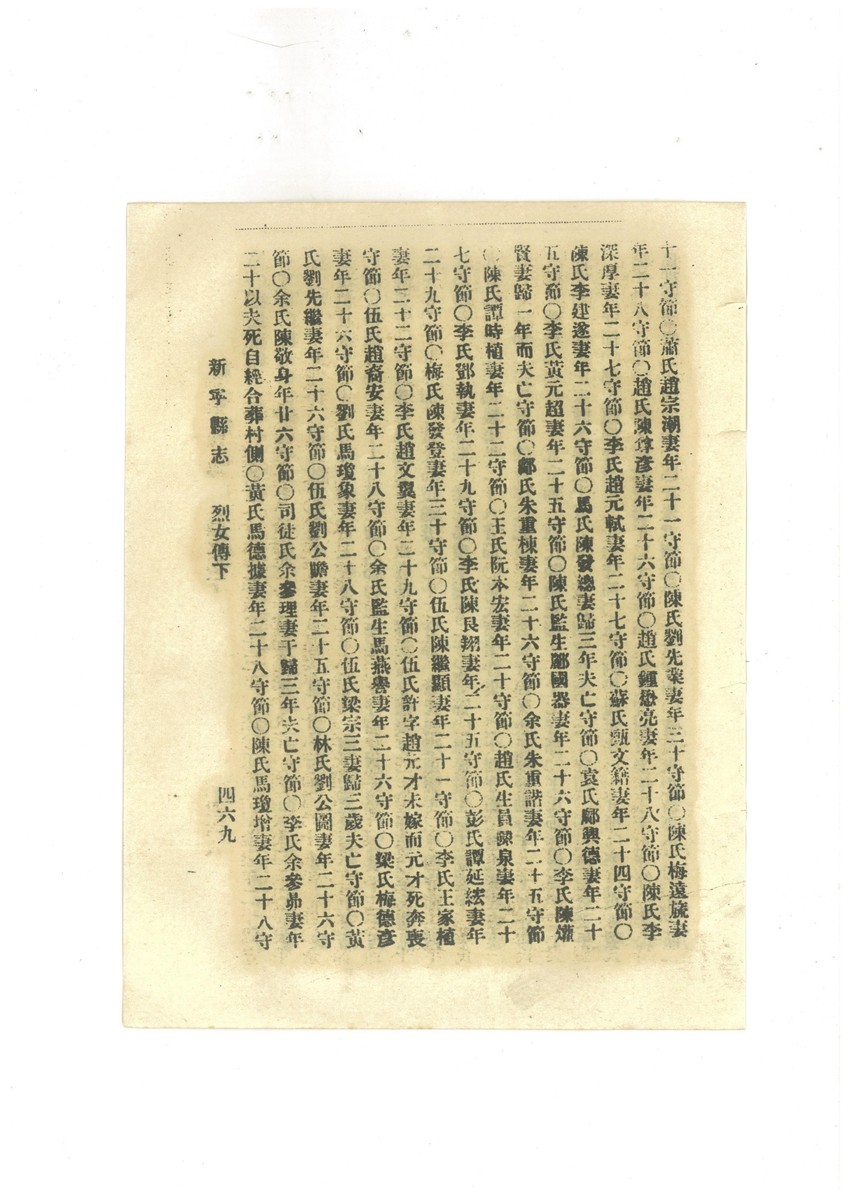 十一守節〇蕭氏趙宗潮妻年二十一守節〇陳氏劉先業妻年三十守節〇陳氏梅遠旒妻
年二十八守節〇趙氏陳尊彥妻年二十六守節〇趙氏鍾懋亮妻年二十八守節〇陳氏李
深厚妻年二十七守節〇李氏趙元軾妻年二十七守節〇蘇氏甄文籍妻年二十四守節〇
陳氏李建遂妻年二十六守節〇馬氏陳發總妻歸三年夫亡守節〇袁氏鄺興德妻年二十
五守節〇李氏黃元超妻年二十五守節〇陳氏監生鄺國器妻年二十六守節〇李氏陳燦
賢妻歸一年而夫亡守節〇鄺氏朱重棟妻年二十六守節〇余氏朱重諧妻年二十五守節
〇陳氏譚時植妻年二十二守節〇王氏阮本宏妻年二十守節〇趙氏生員 泉妻年二十
七守節〇李氏鄧執妻年二十九守節〇李氏陳良翊妻年二十五守節〇彭氏譚延紘妻年
二十九守節〇梅氏陳發登妻年三十守節〇伍氏陳繼顯妻年二十一守節〇李氏王家植
妻年二十二守節〇李氏趙文翼妻年二十九守節〇伍氏許字趙元才未嫁而元才死奔喪
守節〇伍氏趙裔安妻年二十八守節〇余氏監生馬燕譽妻年二十六守節〇梁氏梅德彥
妻年二十六守節〇劉氏馬瓊象妻年二十八守節〇伍氏梁宗三妻歸三歲夫亡守節〇黃
氏劉先繼妻年二十六守節〇伍氏劉公瞻妻年二十五守節〇林氏劉公圖妻年二十六守
節〇余氏陳敬身年廿六守節〇司徒氏余參理妻于歸三年夫亡守節〇李氏余參昴妻年
二十以夫死自經合葬村側〇黃氏馬德據妻年二十八守節〇陳氏馬瓊增妻年二十八守
新寧縣志 烈女傳下 四六九